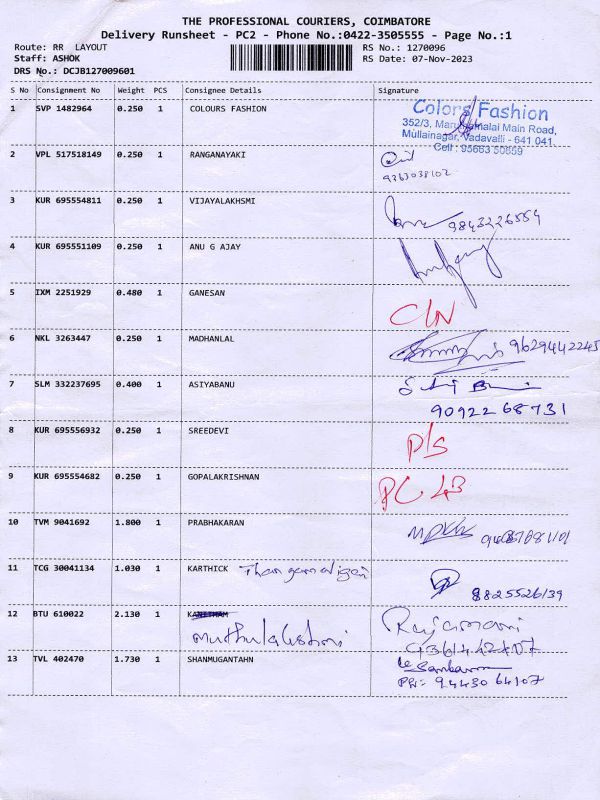 THE PROFESSIONAL COURIERS, COIMBATORE
Delivery Runsheet - PC2 - Phone No.:0422-3505555 - Page No.:1
Route: RR LAYOUT RS No.: 1270096
Staff: ASHOK RS Date: 07-Nov-2023
DRS No.: DCJB127009601
S No Consignment No Weight PCS Consignee Details Signature
1 SVP 1482964 0.250 1 COLOURS FASHION
Colors Fashion
352/3, Maruthamalai Main Road,
Mullainagar, Vadavalli - 641 041.
Cell : 95663 50659
2 VPL 517518149 0.250 1 RANGANAYAKI
9363038102
3 KUR 695554811 0.250 1 VIJAYALAKHSMI
9843226554
4 KUR 695551109 0.250 1 ANU G AJAY
5 IXM 2251929 0.480 1 GANESAN
C/N
6 NKL 3263447 0.250 1 MADHANLAL 9629442245
7 SLM 332237695 0.400 1 ASIYABANU
90922 68731
8 KUR 695556932 0.250 1 SREEDEVI
P/S
9 KUR 695554682 0.250 1 GOPALAKRISHNAN
10 TVM 9041692 1.800 1 PRABHAKARAN
11 TCG 30041134 1.030 1 KARTHICK
8825526139
12 BTU 610022 2.130 1
Muthulakshmi Rajamani
13 TVL 402470 1.730 1 SHANMUGANTAHN
PH: 94430 64107